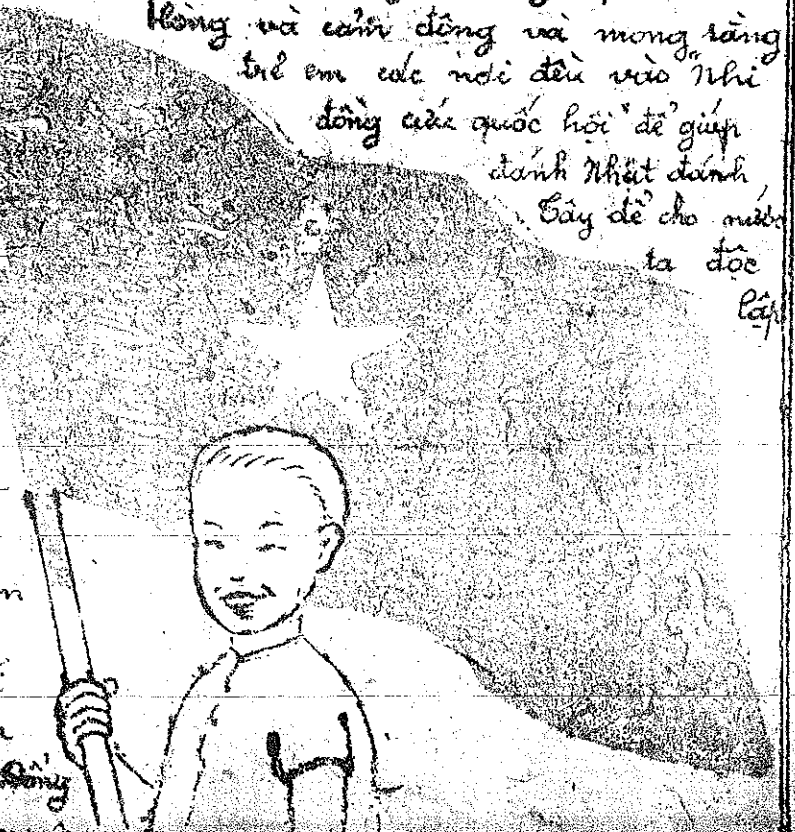 Hồng và cảm động và mong rằng
trẻ em các nơi đều vào "Nhi
đồng cứu quốc hội" để giúp
đánh Nhật đánh
Tây để cho nước
ta độc
lập